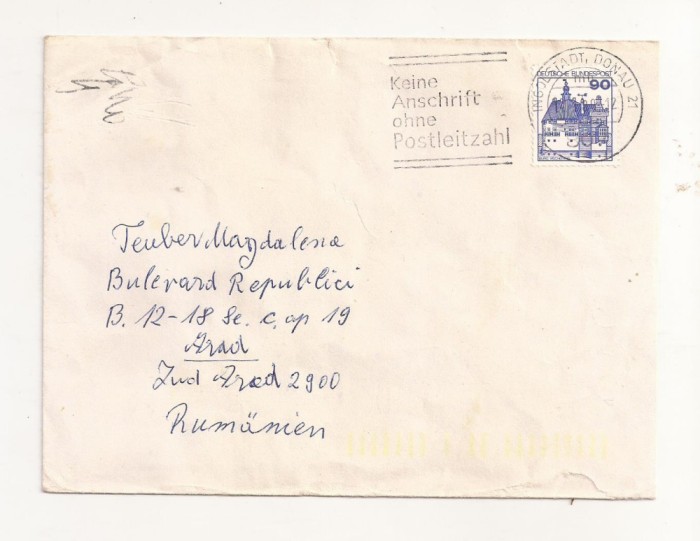 Keine
Anschrift
ohne
Postleitzahl
INGOLSTADT, DONAU 21
DEUTSCHE BUNDESPOST
90
Teuber Magdalena
Bulevard Republici
B. 12-18 Sc. C. ap 19
Arad
Jud Arad 2900
Rumänien